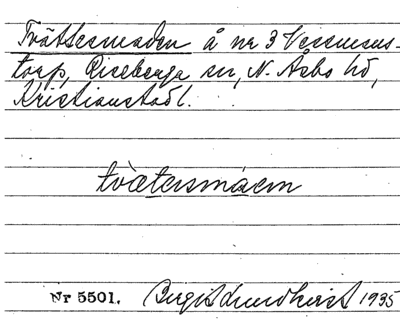 Trättesmaden å nr 3 Vessmans-
torp, Riseberga sn, N. Åsbo hd,
Kristianstad l.
tvætərsmáen
Nr 5501. Bergit Lundkvist 1935